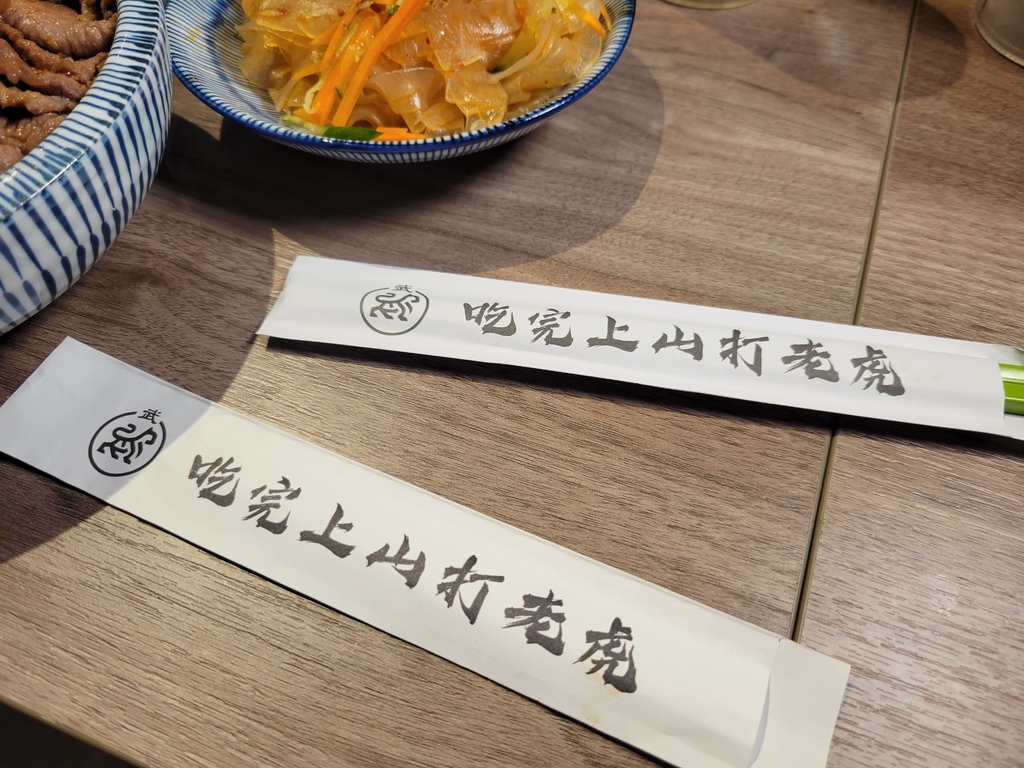 武
吃完上山打老虎
武
吃完上山打老虎